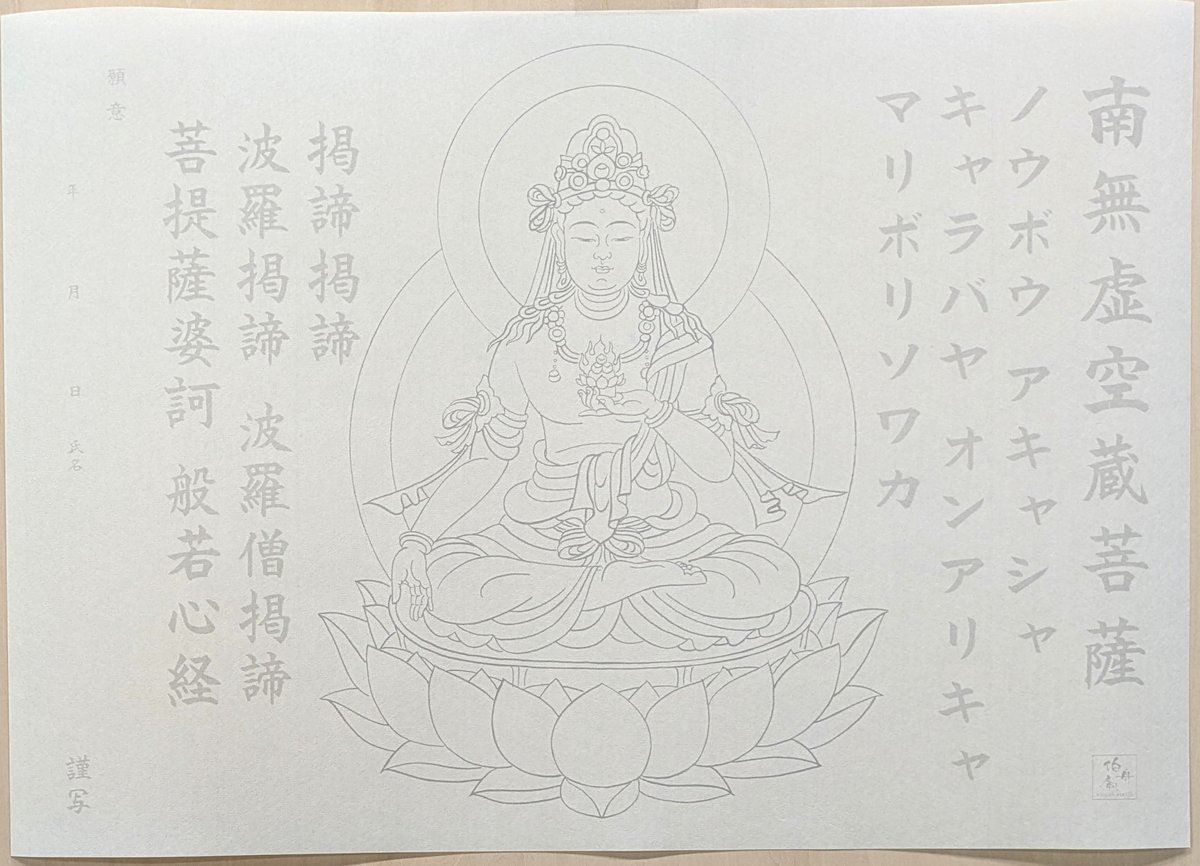 南無虚空蔵菩薩
ノウボウ アキャシャ
キャラバヤ オンアリキャ
マリボリソワカ
掲諦掲諦
波羅掲諦 波羅僧掲諦
菩提薩婆訶 般若心経
願意
年 月 日 氏名
謹写